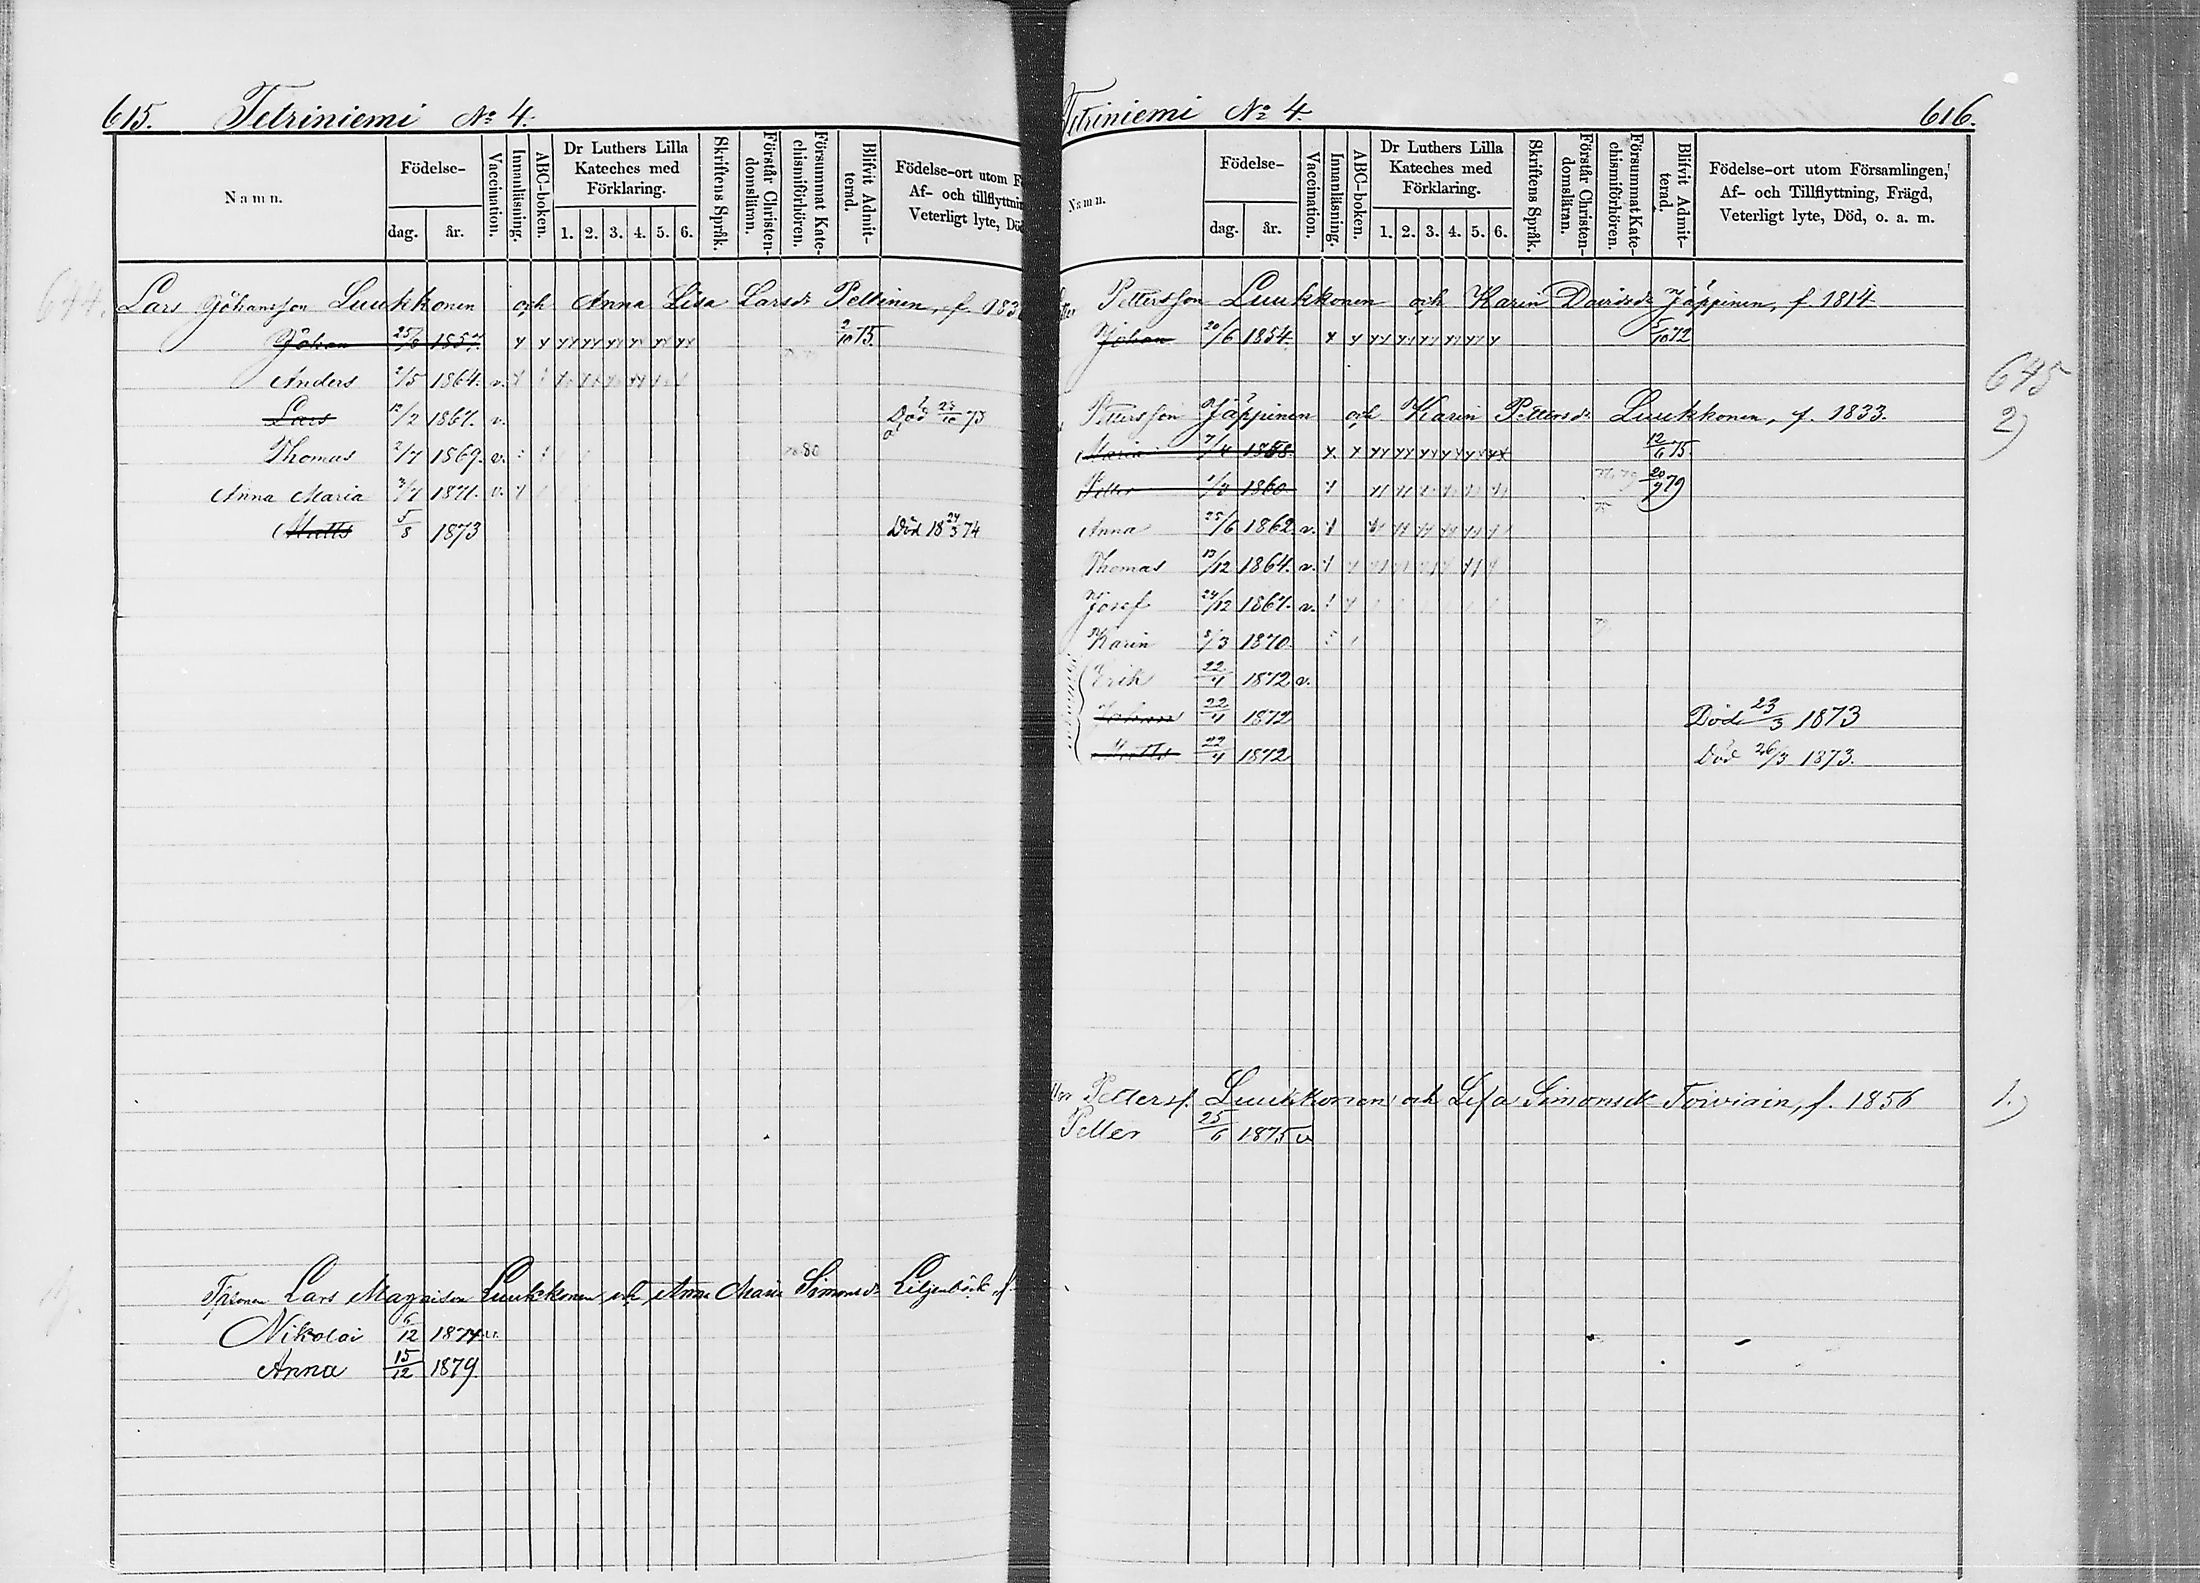 615. Tetriniemi No 4.
Namn.
Födelse-
dag. år.
Vaccination.
Innanläsning.
ABC-boken.
Dr Luthers Lilla Kateches med Förklaring.
1. 2. 3. 4. 5. 6.
Skriftens Språk.
Förstår Christendomsläran.
Försummat Katechismiförhören.
Blifvit Admitterad.
Födelse-ort utom F
Af- och tillflyttnin
Veterligt lyte, Död
644.
Lars Johansson Luukkonen och Anna Lisa Larsdr Peltinen, f. 183
Johan 25/6 1857. 2/10 75.
Anders 2/5 1864. v.
Lars 12/2 1867. v. Död 23/10 73
Thomas 2/7 1869. v. 80
Anna Maria 3/7 1871. v.
Matts 5/8 1873 Död 18 24/3 74
Lars Magnison Luukkonen och Anna Maria Simonsdr Liljenbäck, f.
Nikolai 6/12 1874 v.
Anna 15/12 1879.
Tetriniemi No 4. 616.
Namn.
Födelse-
dag. år.
Vaccination.
Innanläsning.
ABC-boken.
Dr Luthers Lilla Kateches med Förklaring.
1. 2. 3. 4. 5. 6.
Skriftens Språk.
Förstår Christendomsläran.
Försummat Katechismiförhören.
Blifvit Admitterad.
Födelse-ort utom Församlingen,
Af- och Tillflyttning, Frägd,
Veterligt lyte, Död, o. a. m.
Pettersson Luukkonen och Karin Davidsdr Jäppinen, f. 1814
Johan 20/6 1854. 5/10 72
645
Pettersson Jäppinen och Karin Pettersdr Luukkonen, f. 1833. 2)
Maria 7/4 1858. 12/6 75.
Petter 1/3 1860. 20/9 79
Anna 25/6 1862. v.
Thomas 13/12 1864. v.
Josef 24/12 1867. v.
Karin 8/3 1870.
Erik 22/4 1872 v.
Johan 22/4 1872 Död 23/3 1873
Matts 22/4 1872 Död 26/3 1873.
Petterss. Luukkonen och Lisa Simonsdr Toiviain, f. 1856 1.)
Petter 25/6 1875 v.